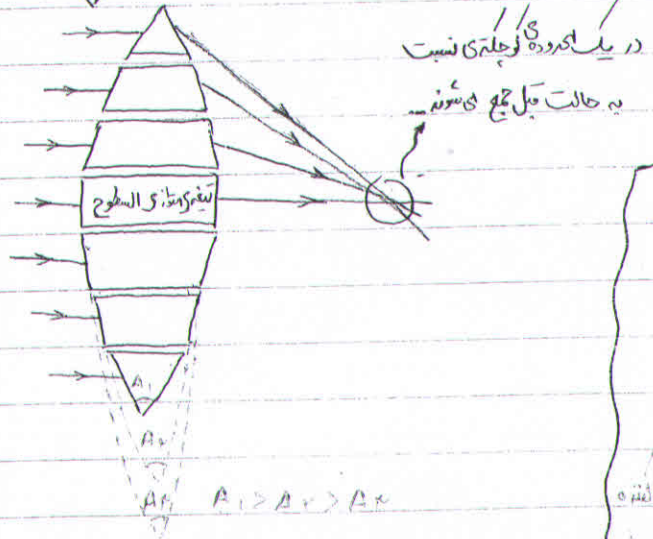 در یک محدوده‌ی کوچکتری نسبت
به حالت قبل جمع می شوند
تیغه‌ی متوازی السطوح
A₁
A₂
A₃ A₁ > A₂ > A₃